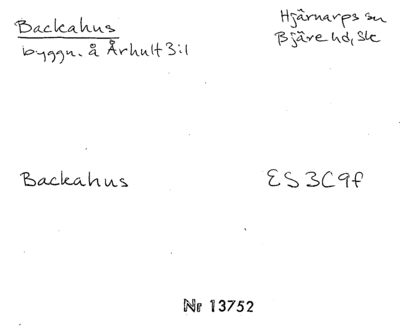 Backahus
byggn. å Århult 3:1
Hjärnarps sn
Bjäre hd, Sk
Backahus
ES3C9f
Nr 13752